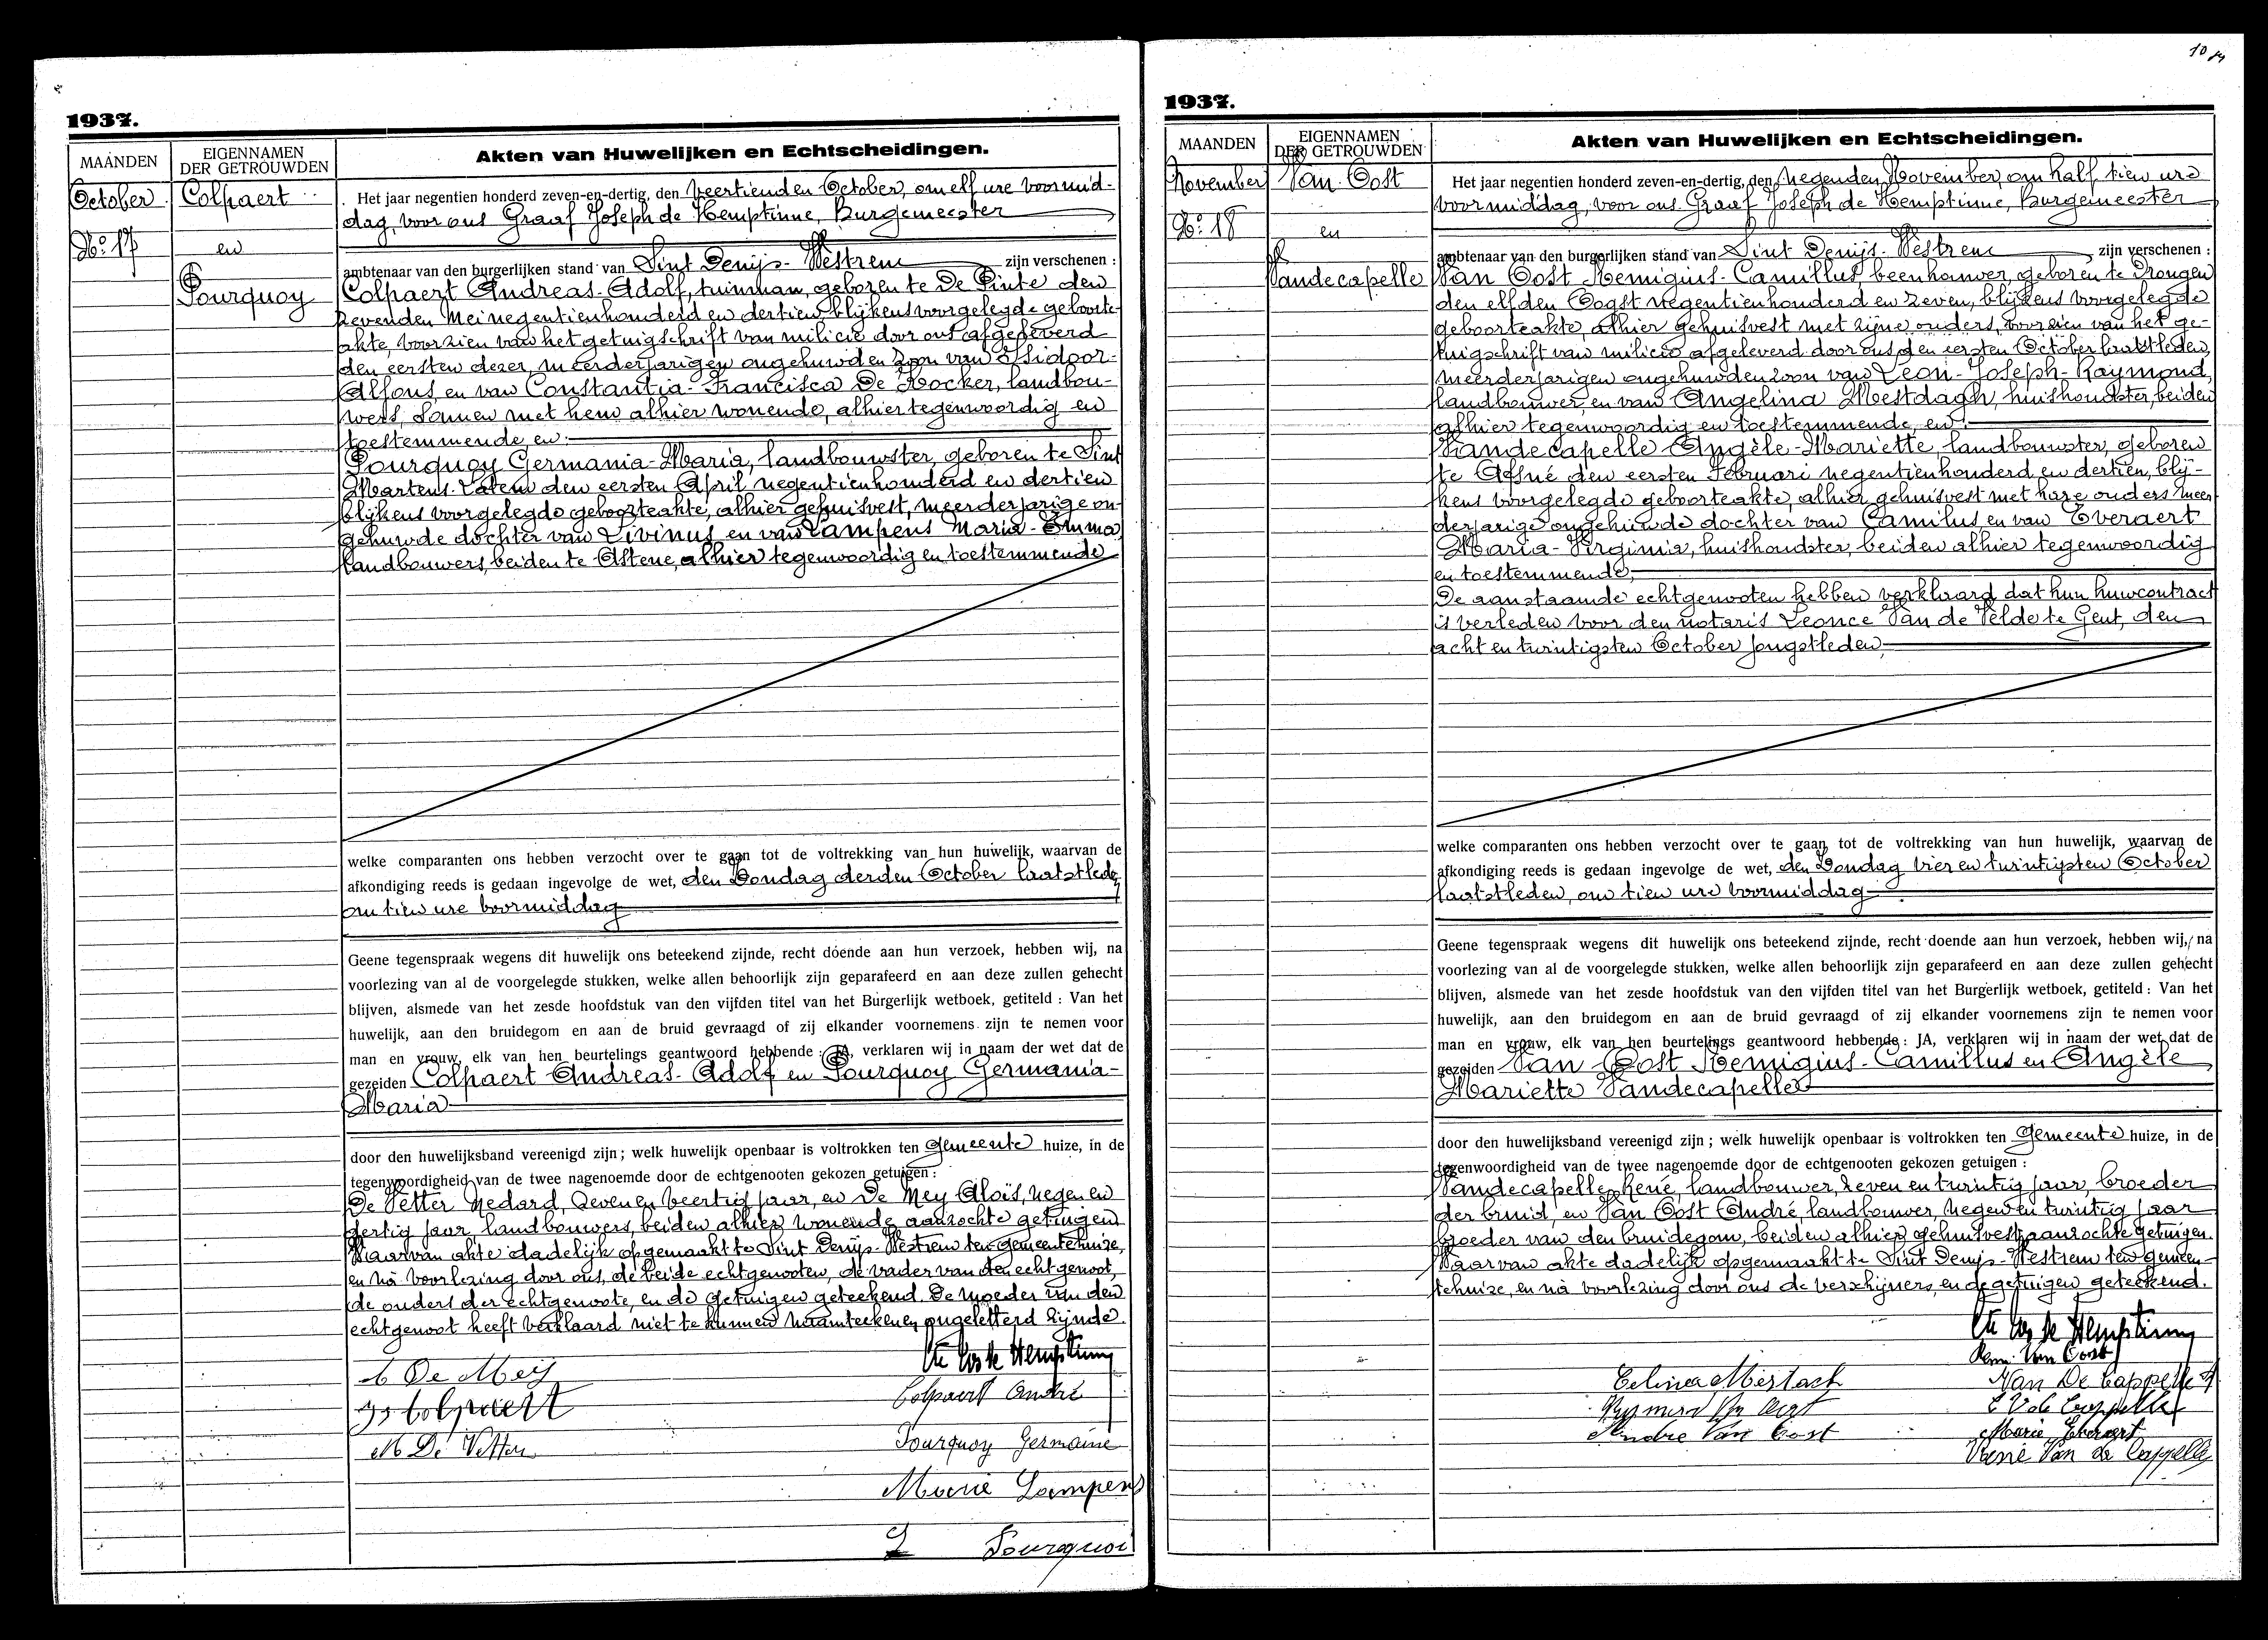 1937.
MAANDEN
EIGENNAMEN
DER GETROUWDEN
Akten van Huwelijken en Echtscheidingen.
October
Colpaert
No. 17
en
Pourquoy
Het jaar negentien honderd zeven-en-dertig, den veertienden October, om elf ure voormid-
dag, voor ons Graaf Joseph de Hemptinne, Burgemeester
ambtenaar van den burgerlijken stand van Sint Denijs-Westrem zijn verschenen :
Colpaert Andreas-Adolf, tuinman, geboren te De Pinte den
zevenden Mei negentienhonderd en dertien, blijkens voorgelegde geboorte-
akte, voorzien van het getuigschrift van milicie door ons afgeleverd
den eersten dezer, meerderjarigen ongehuwden zoon van Isidoor-
Alfons, en van Constantia-Francisca De Kocker, landbou-
wers, samen met hem alhier wonende, alhier tegenwoordig en
toestemmende, en
Pourquoy Germania-Maria, landbouwster, geboren te Sint
Martens-Latem den eersten April negentienhonderd en dertien
blijkens voorgelegde geboorteakte, alhier gehuisvest, meerderjarige on-
gehuwde dochter van Livinus en van Lampens Maria-Emma
landbouwers, beiden te Astene, alhier tegenwoordig en toestemmende
welke comparanten ons hebben verzocht over te gaan tot de voltrekking van hun huwelijk, waarvan de
afkondiging reeds is gedaan ingevolge de wet, den Zondag derden October laatstleden,
om tien ure voormiddag
Geene tegenspraak wegens dit huwelijk ons beteekend zijnde, recht doende aan hun verzoek, hebben wij, na
voorlezing van al de voorgelegde stukken, welke allen behoorlijk zijn geparafeerd en aan deze zullen gehecht
blijven, alsmede van het zesde hoofdstuk van den vijfden titel van het Burgerlijk wetboek, getiteld : Van het
huwelijk, aan den bruidegom en aan de bruid gevraagd of zij elkander voornemens zijn te nemen voor
man en vrouw, elk van hen beurtelings geantwoord hebbende : JA, verklaren wij in naam der wet dat de
gezeiden Colpaert Andreas-Adolf en Pourquoy Germania-
Maria
door den huwelijksband vereenigd zijn ; welk huwelijk openbaar is voltrokken ten Gemeente huize, in de
tegenwoordigheid van de twee nagenoemde door de echtgenooten gekozen getuigen :
De Vetter Medard, zeven en veertig jaar, en De Mey Aloïs, negen en
dertig jaar, landbouwers, beiden alhier wonende, aanzochte getuigen
Waarvan akte dadelijk opgemaakt te Sint Denijs-Westrem ten gemeentehuize,
en na voorlezing door ons, de beide echtgenooten, de vader van den echtgenoot,
de ouders der echtgenoote, en de getuigen geteekend. De moeder van den
echtgenoot heeft verklaard niet te kunnen naamteekenen, ongeletterd zijnde.
Cte Jos de Hemptinne
A De Meij
Colpaert André
Is Colpaert
M De Vetter
Pourquoy Germaine
Marie Lampens
L Pourquoi
10
1937.
MAANDEN
EIGENNAMEN
DER GETROUWDEN
Akten van Huwelijken en Echtscheidingen.
November
Van Oost
No. 18
en
Vandecapelle
Het jaar negentien honderd zeven-en-dertig, den negenden November, om half tien ure
voormiddag, voor ons Graaf Joseph de Hemptinne, Burgemeester
ambtenaar van den burgerlijken stand van Sint Denijs-Westrem zijn verschenen :
Van Oost Remigius-Camillus, beenhouwer, geboren te Drongen
den elfden Oogst negentienhonderd en zeven, blijkens voorgelegde
geboorteakte, alhier gehuisvest met zijne ouders, voorzien van het ge-
tuigschrift van milicie afgeleverd door ons den eersten October laatstleden,
meerderjarigen ongehuwden zoon van Leon-Joseph-Raymond,
landbouwer, en van Angelina Mestdagh, huishoudster, beiden
alhier tegenwoordig en toestemmende, en
Vandecapelle Angèle-Mariette, landbouwster, geboren
te Afsné den eersten Februari negentienhonderd en dertien, blij-
kens voorgelegde geboorteakte, alhier gehuisvest met hare ouders, meer-
derjarige ongehuwde dochter van Camilus, en van Everaert
Maria-Virginia, huishoudster, beiden alhier tegenwoordig
en toestemmende,
De aanstaande echtgenooten hebben verklaard dat hun huwcontract
is verleden voor den notaris Leonce Van de Velde te Gent, den
acht en twintigsten October jongstleden,
welke comparanten ons hebben verzocht over te gaan tot de voltrekking van hun huwelijk, waarvan de
afkondiging reeds is gedaan ingevolge de wet, den Zondag vier en twintigsten October
laatstleden, om tien ure voormiddag
Geene tegenspraak wegens dit huwelijk ons beteekend zijnde, recht doende aan hun verzoek, hebben wij, na
voorlezing van al de voorgelegde stukken, welke allen behoorlijk zijn geparafeerd en aan deze zullen gehecht
blijven, alsmede van het zesde hoofdstuk van den vijfden titel van het Burgerlijk wetboek, getiteld : Van het
huwelijk, aan den bruidegom en aan de bruid gevraagd of zij elkander voornemens zijn te nemen voor
man en vrouw, elk van hen beurtelings geantwoord hebbende : JA, verklaren wij in naam der wet dat de
gezeiden Van Oost Remigius-Camillus en Angèle
Mariette Vandecapelle
door den huwelijksband vereenigd zijn ; welk huwelijk openbaar is voltrokken ten Gemeente huize, in de
tegenwoordigheid van de twee nagenoemde door de echtgenooten gekozen getuigen :
Vandecapelle René, landbouwer, zeven en twintig jaar, broeder
der bruid, en Van Oost André, landbouwer, negen en twintig jaar
broeder van den bruidegom, beiden alhier gehuisvest, aanzochte getuigen.
Waarvan akte dadelijk opgemaakt te Sint Denijs-Westrem ten gemeen-
tehuize, en na voorlezing door ons de verschijners, en de getuigen geteekend.
Cte Jos de Hemptinne
Rem. Van Oost
Celina Mestach
Van De Cappelle A
Raymond Van Oost
C V de Cappelle
Andre Van Oost
Marie Everaert
René Van de Cappelle